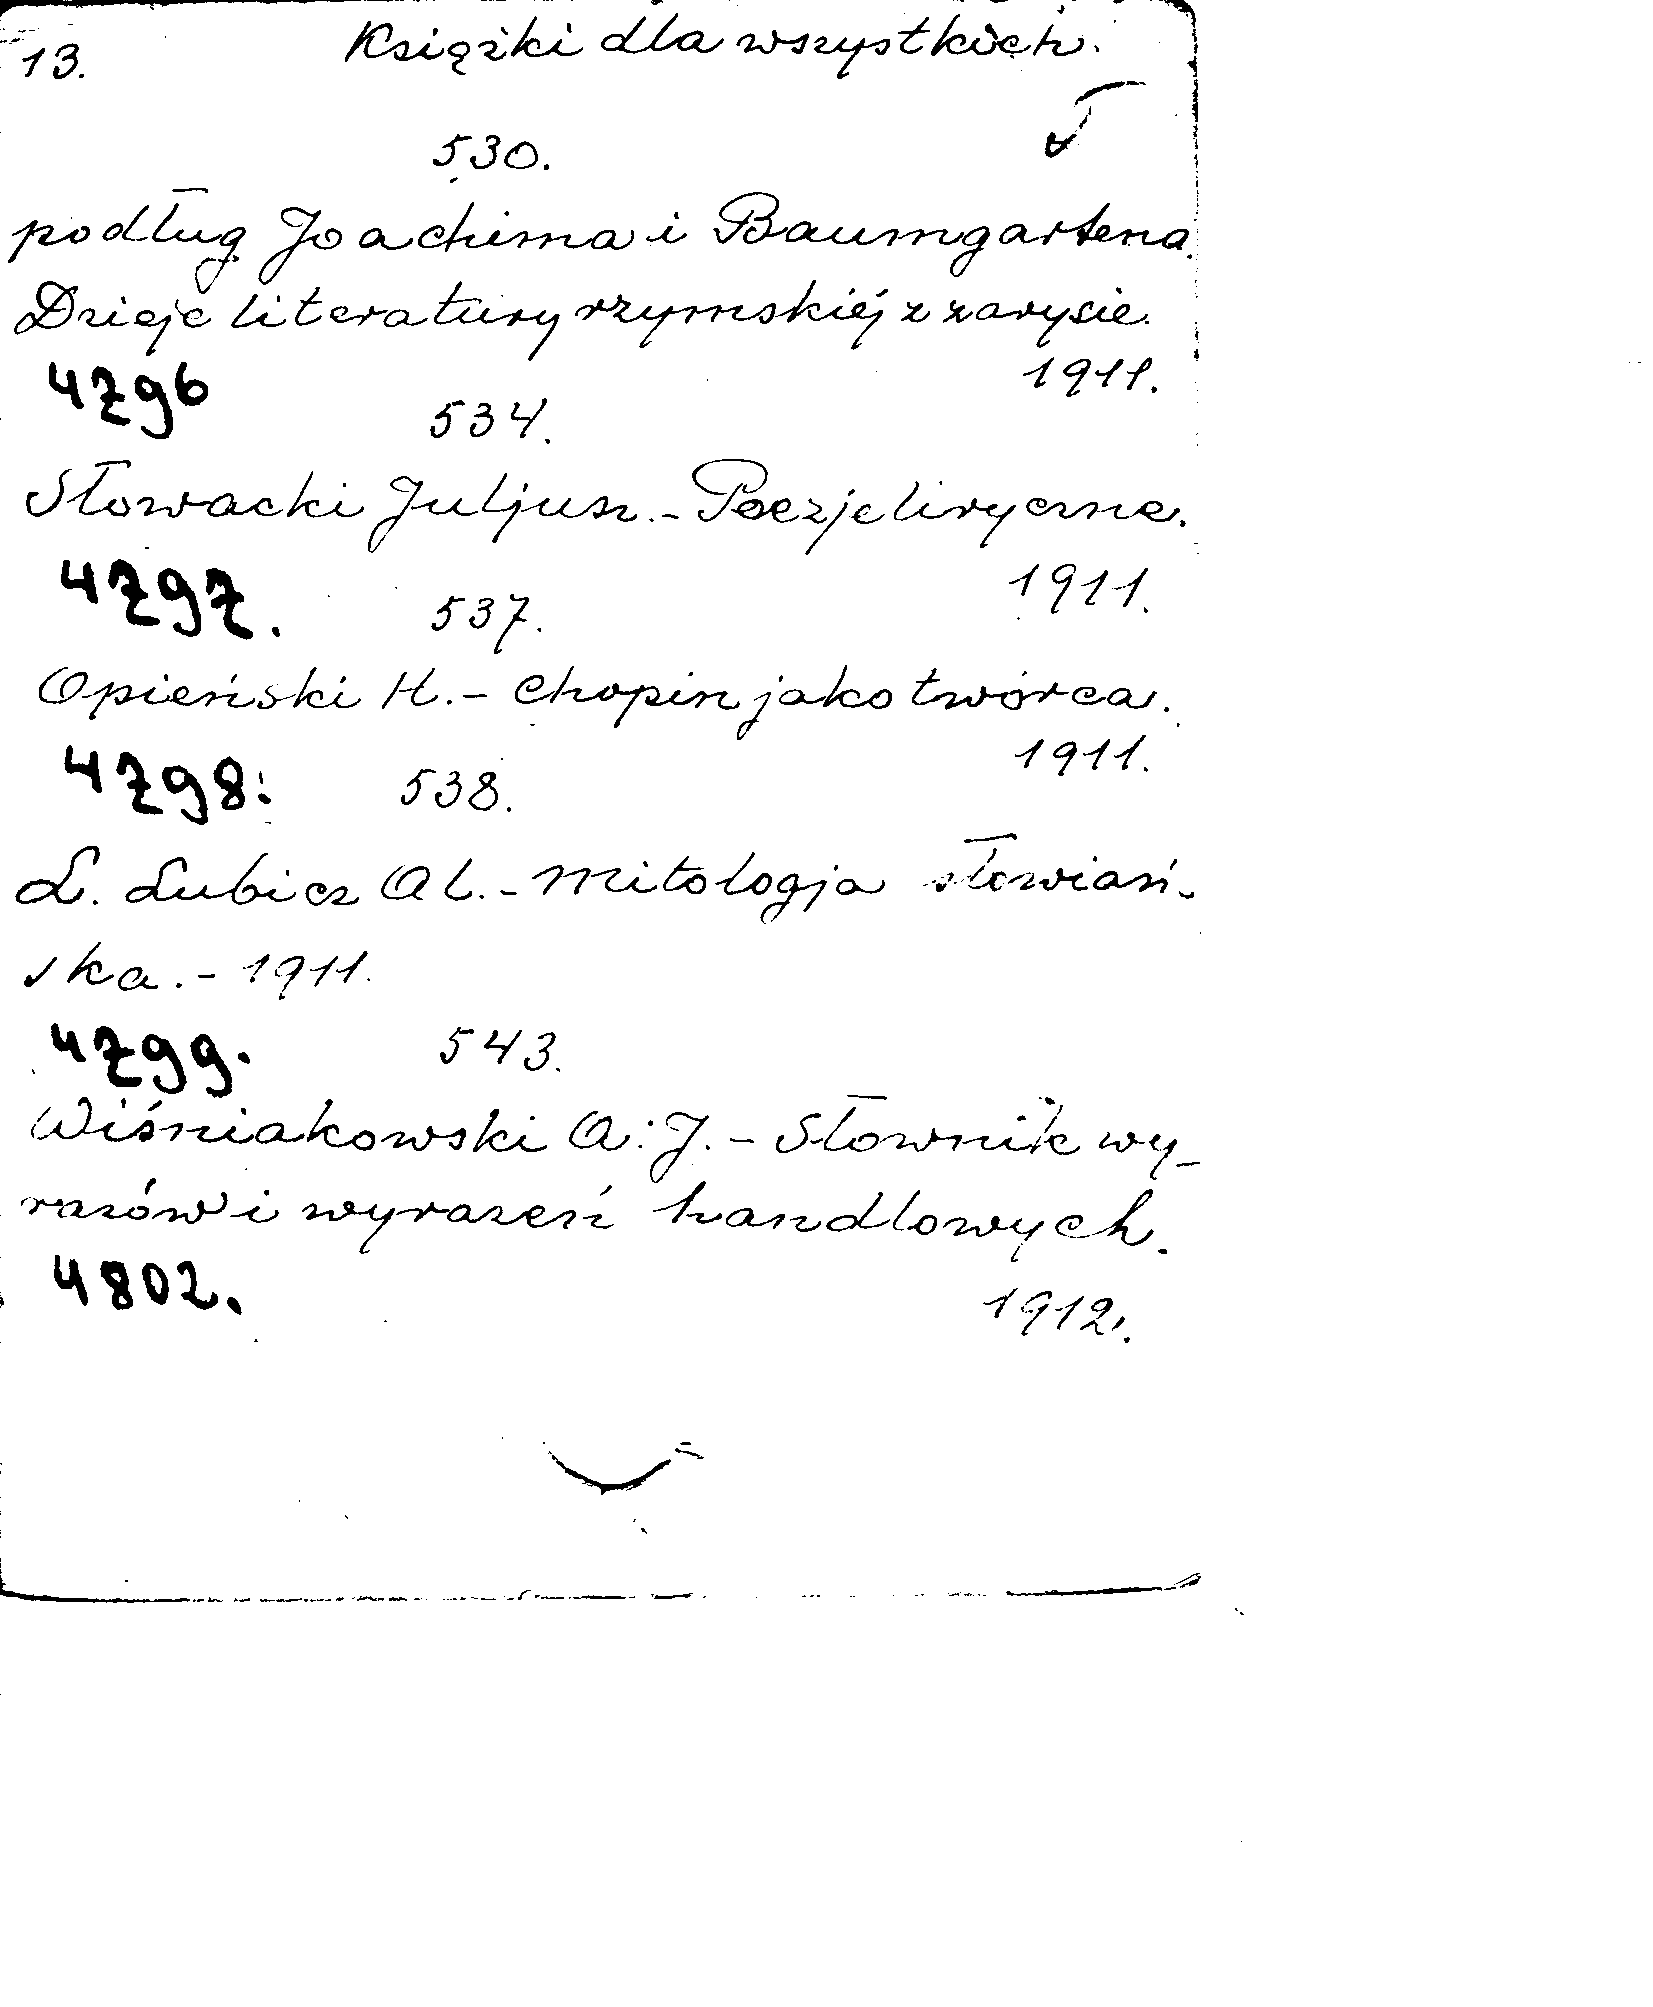 13. Książki dla wszystkich.
530.
podług Joachima i Baumgartena.
Dzieje literatury rzymskiéj z zarysie.
4796 1911.
534.
Słowacki Juljusz.- Poezje liryczne.
4797. 537. 1911.
Opieński H.- Chopin jako twórca.
4798. 538. 1911.
L. Lubicz Al.- Mitologja słowiań-
ska.- 1911.
4799. 543.
Wiśniakowski A. J.- Słownik wy-
razów i wyrazeń handlowych.
4802. 1912.